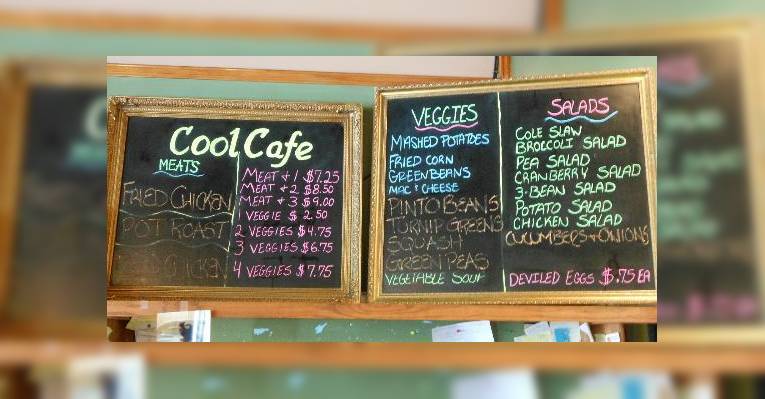 Cool Cafe
MEATS
FRIED CHICKEN
POT ROAST
CHICKEN
MEAT + 1 $7.25
MEAT + 2 $8.50
MEAT + 3 $9.00
1 VEGGIE $ 2.50
2 VEGGIES $4.75
3 VEGGIES $6.75
4 VEGGIES $7.75
VEGGIES
MASHED POTATOES
FRIED CORN
GREEN BEANS
MAC & CHEESE
PINTO BEANS
TURNIP GREENS
SQUASH
GREEN PEAS
VEGETABLE SOUP
SALADS
COLE SLAW
BROCCOLI SALAD
PEA SALAD
CRANBERRY SALAD
3-BEAN SALAD
POTATO SALAD
CHICKEN SALAD
CUCUMBERS + ONIONS
DEVILED EGGS $.75 EA